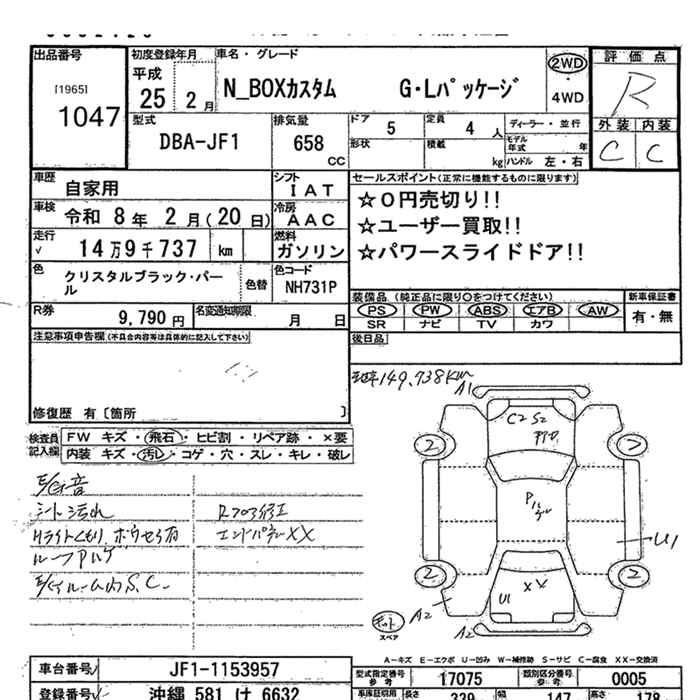 出品番号
[1965]
1047
初度登録年月
平成
25 2 月
車名・グレード
N_BOXカスタム G・Lパッケージ
2WD
・
4WD
評価点
R
外装 内装
C C
型式
DBA-JF1
排気量
658
CC
ドア 5
定員 4 人
形状
積載 kg
ディーラー・並行
モデル年式 年
ハンドル 左・右
車歴 自家用
シフト IAT
車検 令和 8年 2月(20日)
冷房 AAC
走行 14万9千737 km
√
燃料 ガソリン
色 クリスタルブラック・パール
色替
色コード NH731P
R券 9,790円
名変通知期限 月 日
セールスポイント(正常に機能するものに限ります)
☆0円売切り!!
☆ユーザー買取!!
☆パワースライドドア!!
装備品 (純正品に限り○をつけてください)
新車保証書
PS PW ABS エアB AW
SR ナビ TV カワ
有・無
後日品
注意事項申告欄(不具合内容等は具体的に記入して下さい)
修復歴 有〔箇所 〕
検査員記入欄
FW キズ・飛石・ヒビ割・リペア跡・×要
内装 キズ・汚レ・コゲ・穴・スレ・キレ・破レ
149,738km
A1
C2 S2
2 2
シート汚れ
エンドパネXX
ルーフアルゲ
U1
2 2
U1 XX
A2
A2
スペア
A-キズ E-エクボ U-凹み W-補修跡 S-サビ C-腐食 XX-交換済
車台番号 JF1-1153957
型式指定番号 参考 17075
類別区分番号 参考 0005
登録番号 沖縄 581 け 6632
車庫証明用 長さ 339 幅 147 高さ 178